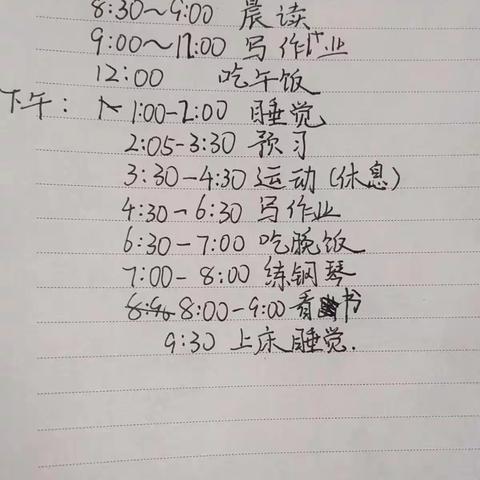 8:30～9:00 晨读
9:00～12:00 写作业
12:00 吃午饭
下午: 1:00-2:00 睡觉
2:05-3:30 预习
3:30-4:30 运动(休息)
4:30-6:30 写作业
6:30-7:00 吃晚饭
7:00-8:00 练钢琴
8:00-9:00 看书
9:30 上床睡觉.